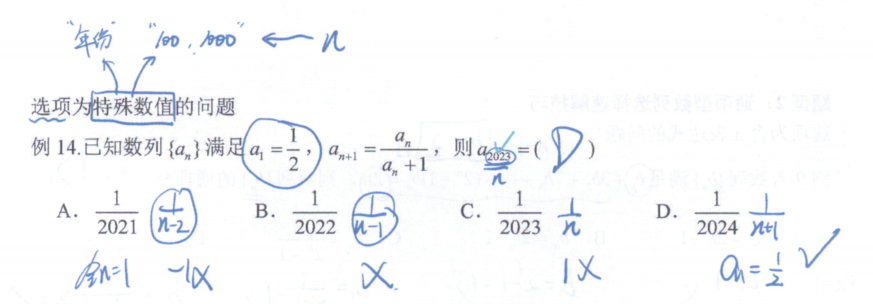 "年份" "100, 1000" ← n
选项为特殊数值的问题
例 14.已知数列{aₙ}满足 a₁ = 1/2, aₙ₊₁ = aₙ/(aₙ+1), 则 a₂₀₂₃=( D )
n
A. 1/2021 1/(n-2) B. 1/2022 1/(n-1) C. 1/2023 1/n D. 1/2024 1/(n+1)
令n=1 -1X X 1X aₙ=1/2 ✓